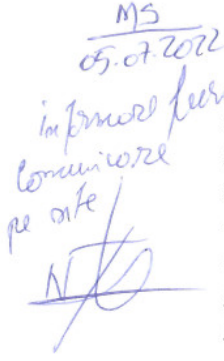 MS
05.07.2022
informare
comunicare
pe site